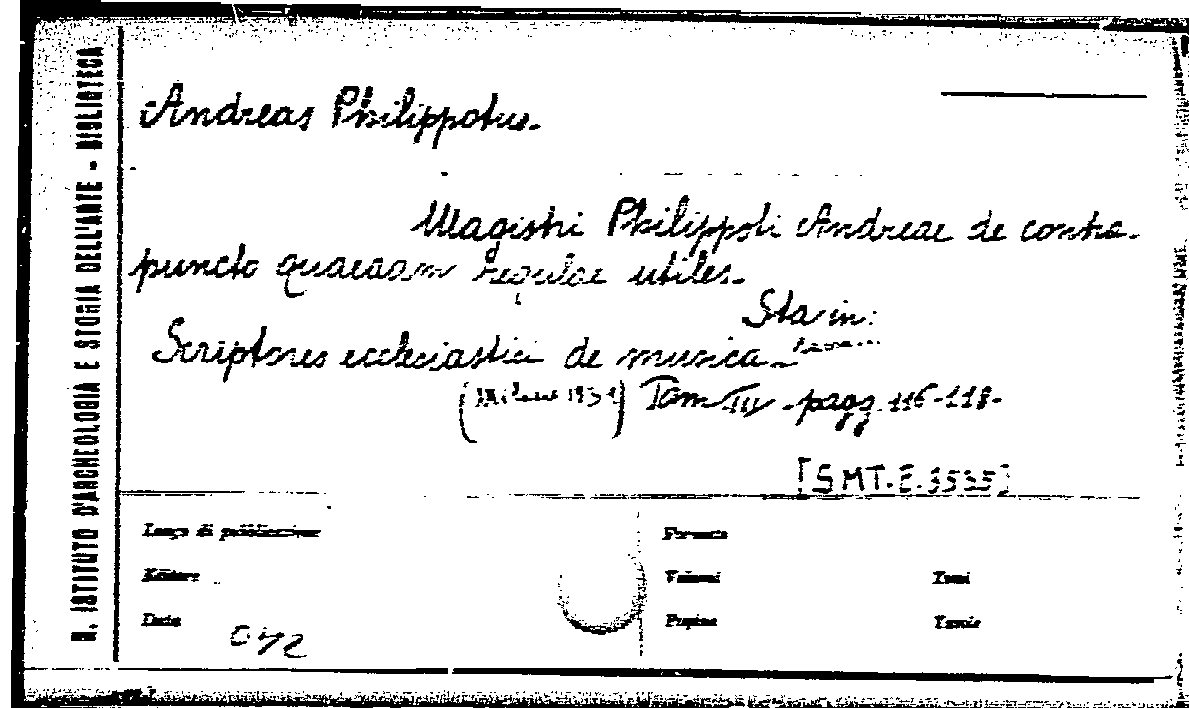 R. ISTITUTO D'ARCHEOLOGIA E STORIA DELL'ARTE - BIBLIOTECA
Andreas Philippotus.
Magistri Philippoti Andreae de contra-
puncto quaedam regulae utiles.
Sta in:
Scriptores ecclesiastici de musica
(Milano 1931) Tom III - pagg. 116-118-
[SMT.E.3535]
Luogo di pubblicazione
Formato
Editore
Volumi
Tomi
Data
Pagine
Tavole